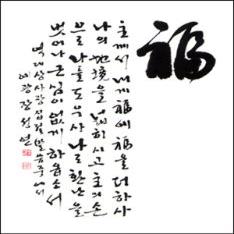 福
主께서 내게 福에 福을 더하사
나의 地境을 넓히시고 主의 손
으로 나를 도우사 나로 환난을
벗어나 근심이 없게 하옵소서
역대상 사장 십절 말씀 중에서